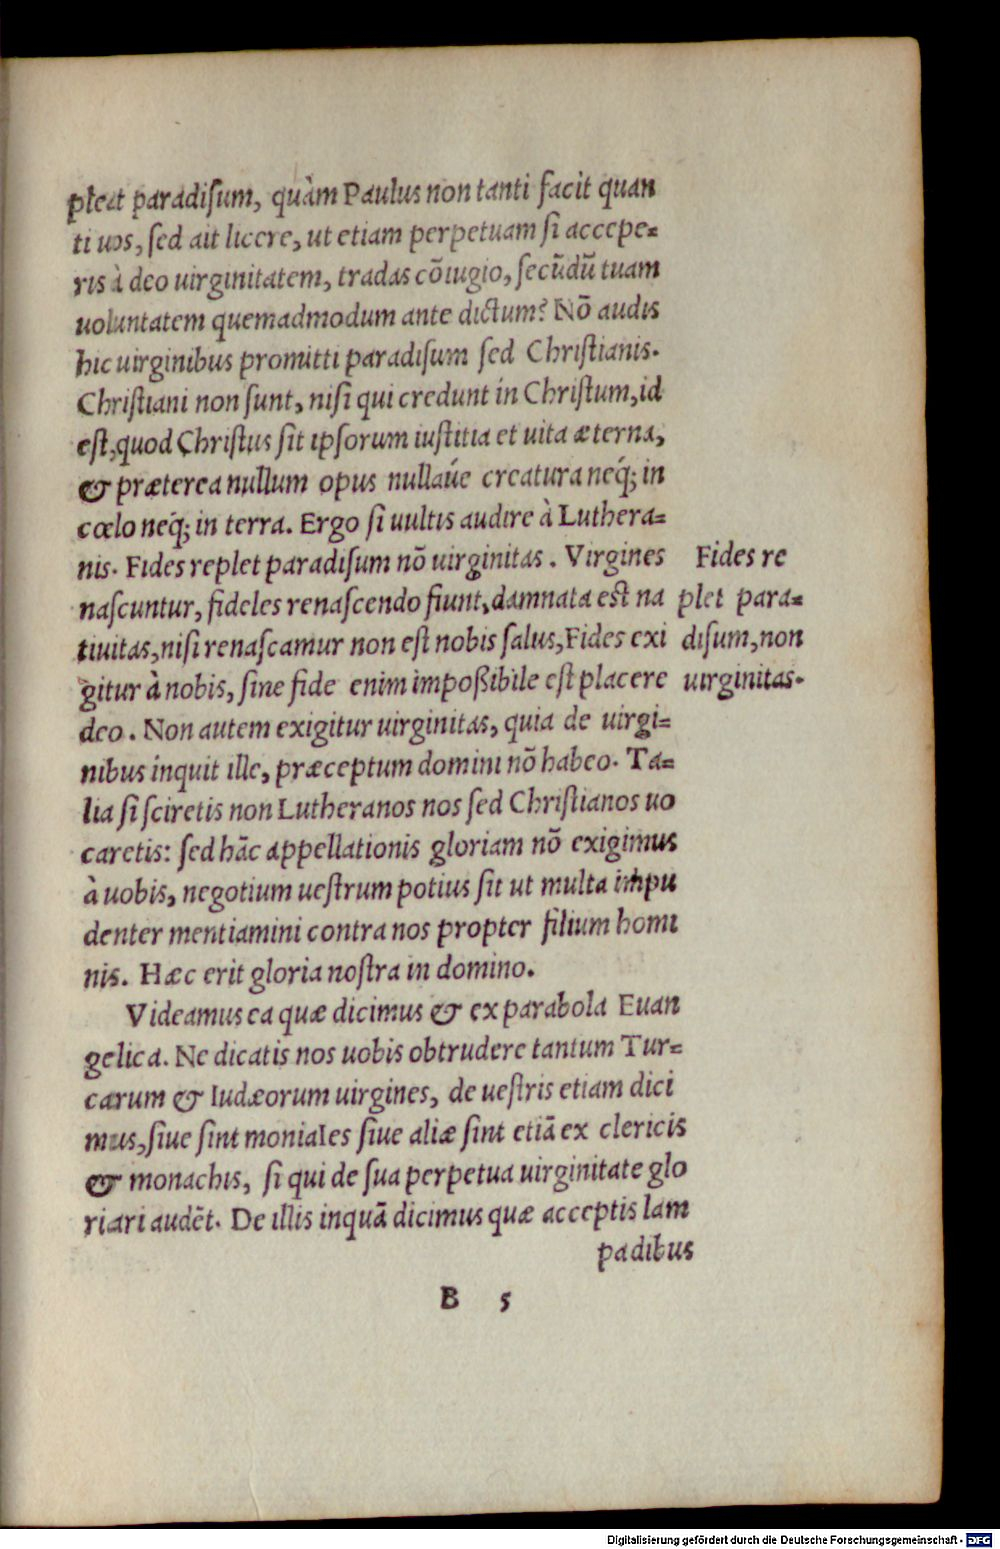 pleat paradiſum, quàm Paulus non tanti facit quan
ti uos, ſed ait licere, ut etiam perpetuam ſi accepe=
ris à deo uirginitatem, tradas cōiugio, ſecūdū tuam
uoluntatem quemadmodum ante dictum? Nō audis
hic uirginibus promitti paradiſum ſed Chriſtianis.
Chriſtiani non ſunt, niſi qui credunt in Chriſtum, id
eſt, quod Chriſtus ſit ipſorum iuſtitia et uita æterna,
& præterea nullum opus nullaúe creatura neq́; in
cœlo neq́; in terra. Ergo ſi uultis audire à Luthera=
nis. Fides replet paradiſum nō uirginitas. Virgines
naſcuntur, fideles renaſcendo fiunt, damnata eſt na
tiuitas, niſi renaſcamur non eſt nobis ſalus, Fides exi
gitur à nobis, ſine fide enim impoßibile eſt placere
deo. Non autem exigitur uirginitas, quia de uirgi=
nibus inquit ille, præceptum domini nō habeo. Ta=
lia ſi ſciretis non Lutheranos nos ſed Chriſtianos uo
caretis: ſed hāc appellationis gloriam nō exigimus
à uobis, negotium ueſtrum potius ſit ut multa impu
denter mentiamini contra nos propter filium homi
nis. Hæc erit gloria noſtra in domino.
Videamus ea quæ dicimus & ex parabola Euan
gelica. Ne dicatis nos uobis obtrudere tantum Tur=
carum & Iudæorum uirgines, de ueſtris etiam dici
mus, ſiue ſint moniales ſiue aliæ ſint etiā ex clericis
& monachis, ſi qui de ſua perpetua uirginitate glo
riari audēt. De illis inquā dicimus quæ acceptis lam
padibus
B 5
Fides re
plet para=
diſum, non
uirginitas.
Digitalisierung gefördert durch die Deutsche Forschungsgemeinschaft - DFG